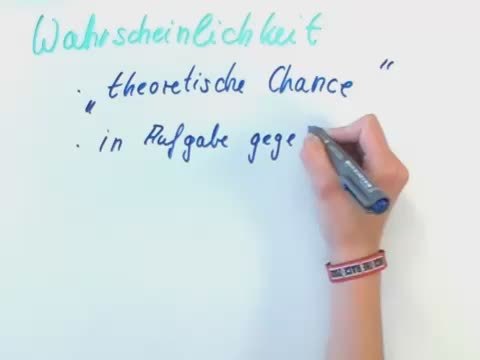 Wahrscheinlichkeit
· „theoretische Chance“
· in Aufgabe gege